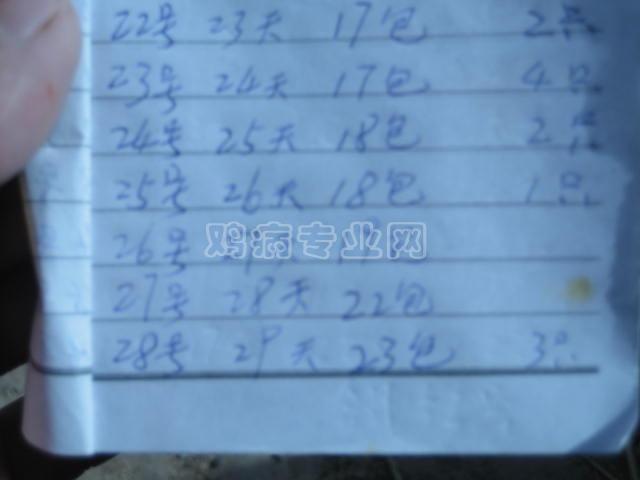 22号 23天 17包 2只
23号 24天 17包 4只
24号 25天 18包 2只
25号 26天 18包 1只
26号
鸡病专业网
27号 28天 22包
28号 29天 23包 3只